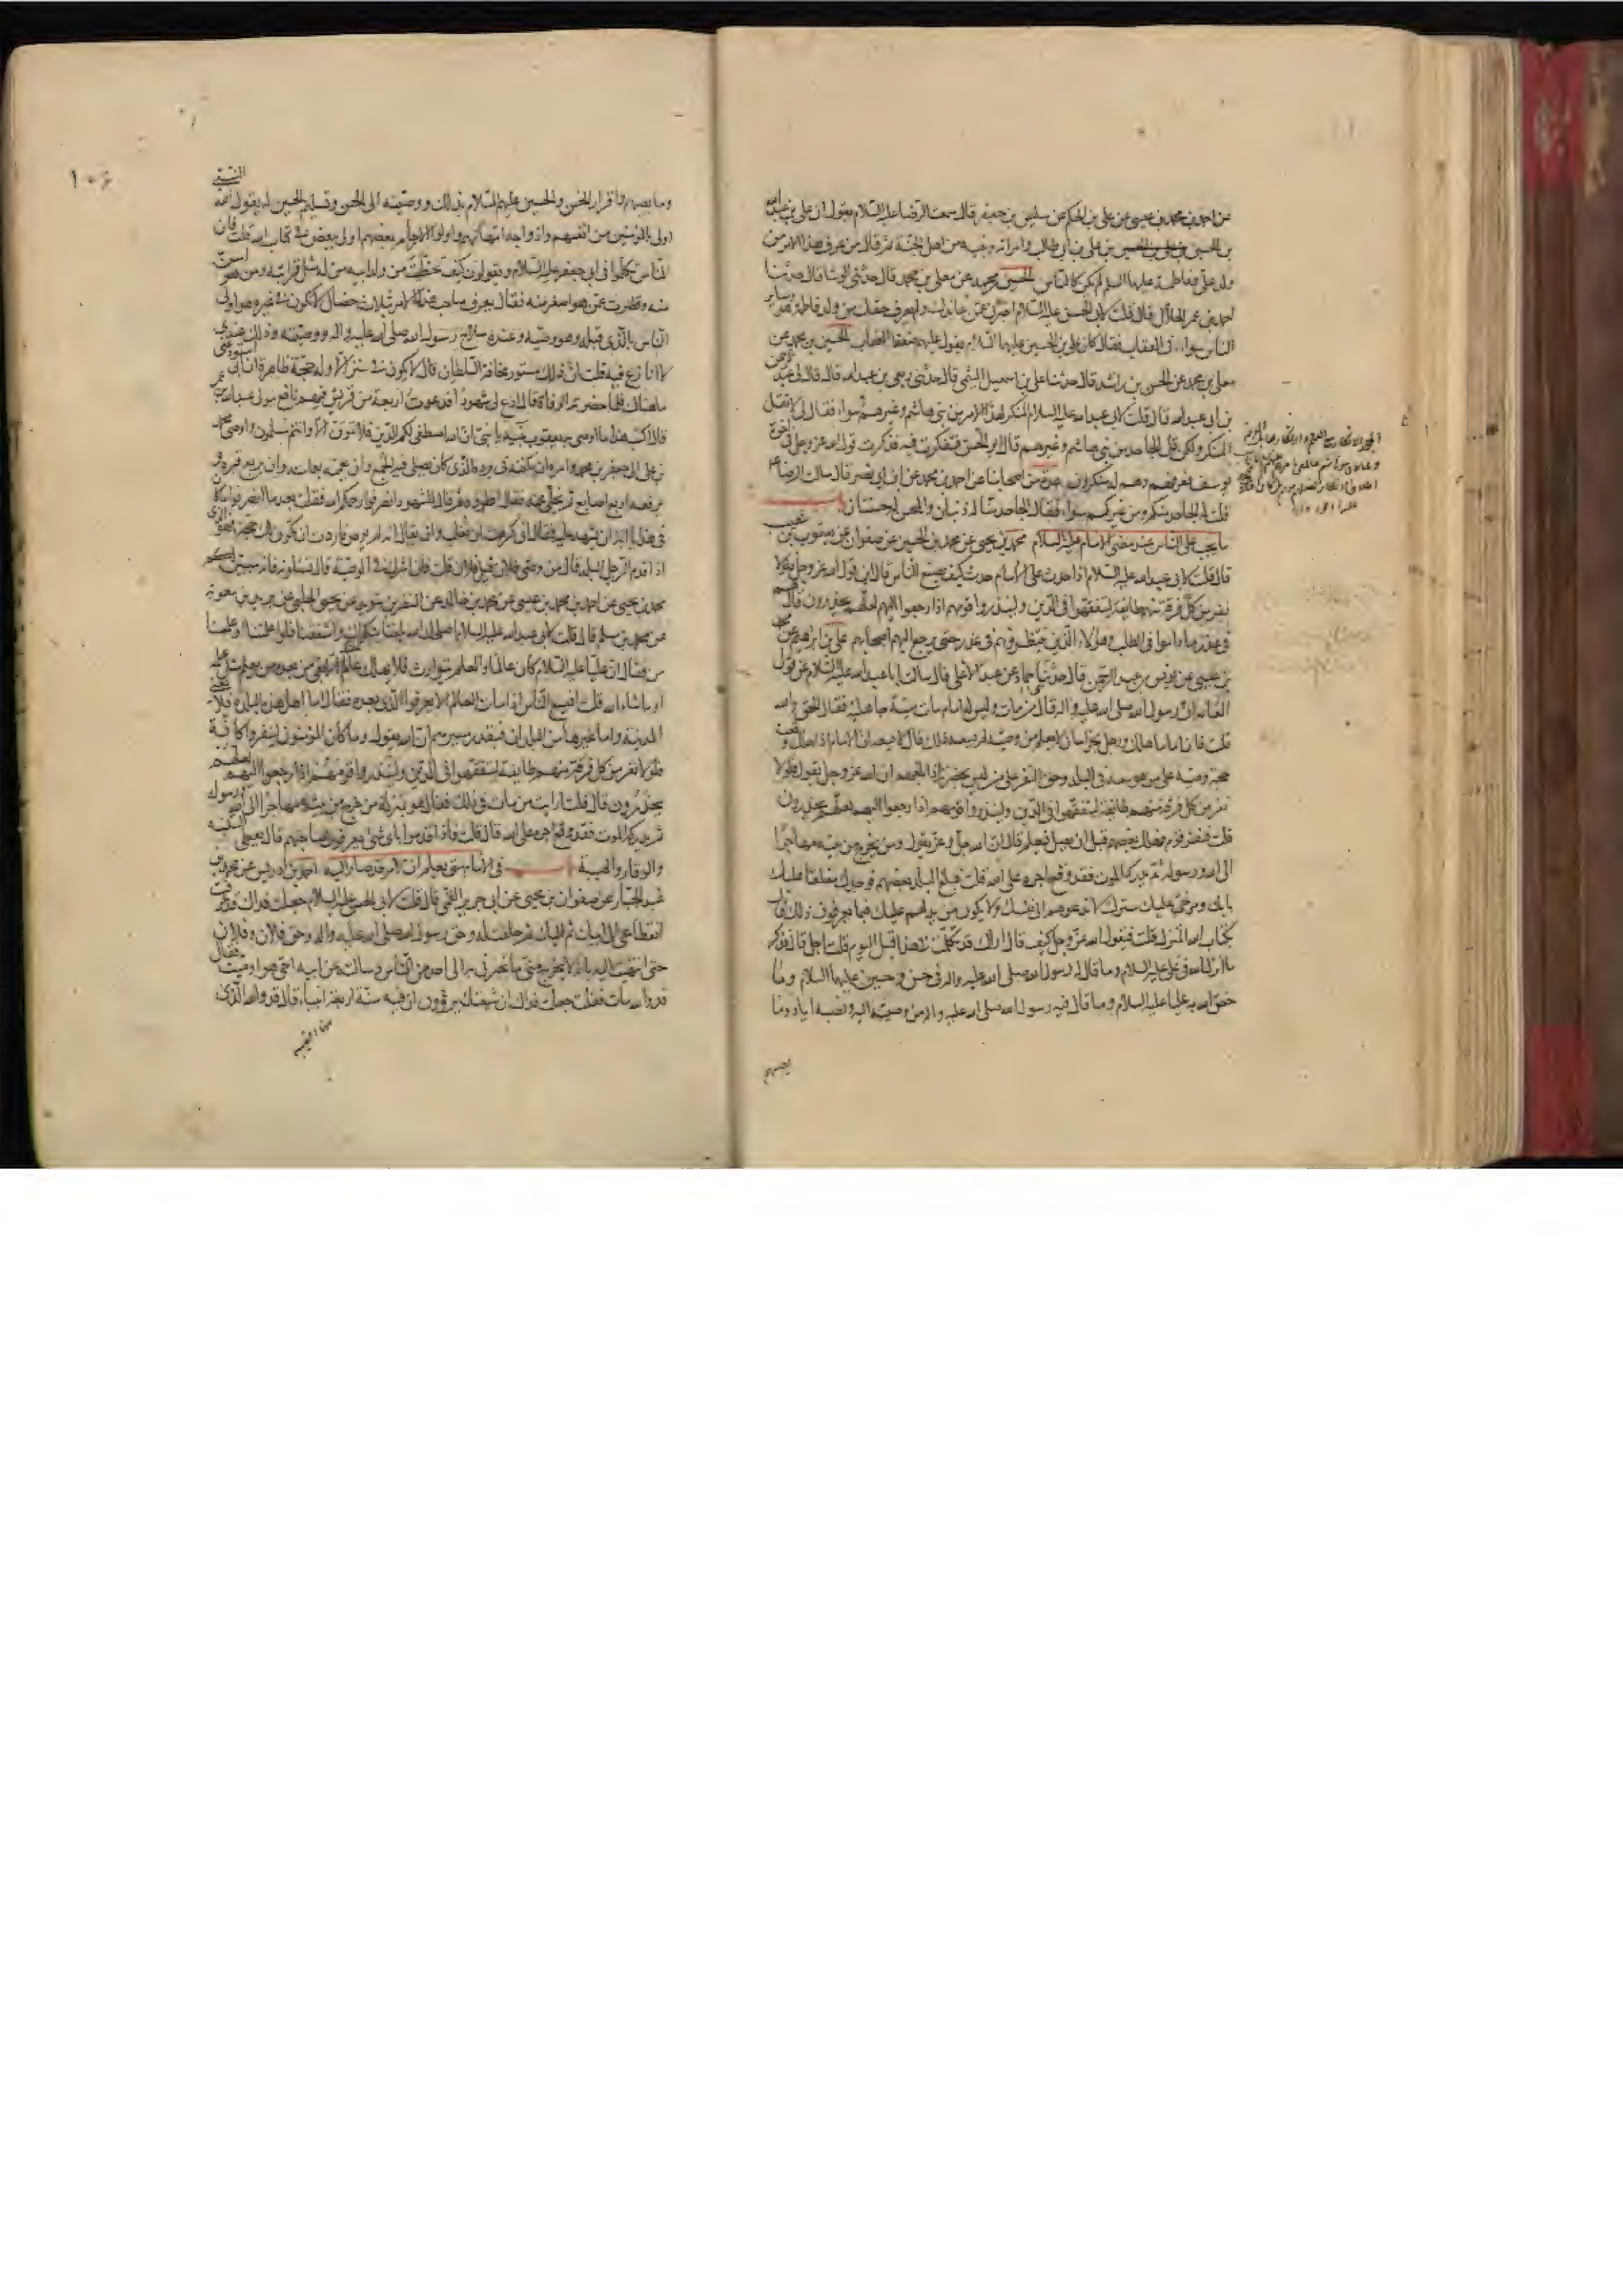 عن احمد بن محمد بن عيسى عن على بن الحكم عن سليمن بن جعفر قال سمعت الرضا عليه السلام يقول ان على بن عبد الله
بن الحسين بن على بن الحسين بن على بن ابى طالب وامراته وبنيه من اهل الجنة ثم قال من عرف هذا الامر من
ولد على وفاطمة عليهما السلم لم يكن كالناس الحسين بن محمد عن معلى بن محمد قال حدثنى الوشا قال حدثنا
احمد بن عمر الحلال قال قلت لابى الحسن عليه السلام اخبرنى عمن عاندك ولم يعرف حقك من ولد فاطمة هو وساير
الناس سواء فى العقاب فقال كان على بن الحسين عليهما السلام يقول عليهم ضعفا العقاب الحسين بن محمد عن
معلى بن محمد عن الحسن بن راشد قال حدثنا على بن اسمعيل الميثمى قال حدثنى ربعى بن عبد الله قال قال لى عبد الرحمن
بن ابى عبد الله قال قلت لابى عبد الله عليه السلام المنكر لهذا الامر من بنى هاشم وغيرهم سواء فقال لى لا تقل
المنكر ولكن قل الجاحد من بنى هاشم وغيرهم قال ابو الحسن فتفكرت فيه فذكرت قول الله عز وجل فى اخوة
يوسف فعرفهم وهم له منكرون عدة من اصحابنا عن احمد بن محمد عن ابن ابى نصر قال سالت الرضا ع
قلت له الجاحد منكم ومن غيركم سواء فقال الجاحد منا له ذنبان والمحسن له حسنتان
ما يجب على الناس عند مضى الامام عليه السلام محمد بن يحيى عن محمد بن الحسين عن صفوان عن يعقوب بن شعيب
قال قلت لابى عبد الله عليه السلام اذا حدث على الامام حدث كيف يصنع الناس قال اين قول الله عز وجل فلولا
نفر من كل فرقة منهم طايفة ليتفقهوا فى الدين ولينذروا قومهم اذا رجعوا اليهم لعلهم يحذرون قال هم
فى عذر ما داموا فى الطلب وهؤلاء الذين ينتظرونهم فى عذر حتى يرجع اليهم اصحابهم على بن ابراهيم عن محمد
بن عيسى عن يونس بن عبد الرحمن قال حدثنا حماد عن عبد الاعلى قال سالت ابا عبد الله عليه السلام عن قول
العامة ان رسول الله صلى الله عليه واله قال من مات وليس له امام مات ميتة جاهلية فقال الحق والله
قلت فان اماما هلك ورجل بخراسان لا يعلم من وصيه لم يسعه ذلك قال لا يسعه ان الامام اذا هلك وقعت
حجة وصيه على من هو معه فى البلد وحق النفر على من ليس بحضرته اذا بلغهم ان الله عز وجل يقول فلولا
نفر من كل فرقة منهم طايفة ليتفقهوا فى الدين ولينذروا قومهم اذا رجعوا اليهم لعلهم يحذرون
قلت فنفر قوم فهلك بعضهم قبل ان يصل فيعلم قال ان الله جل وعز يقول ومن يخرج من بيته مهاجرا
الى الله ورسوله ثم يدركه الموت فقد وقع اجره على الله قلت فبلغ البلد بعضهم فوجدك مغلقا عليك
بابك ومرخى عليك سترك لا تدعوهم الى نفسك ولا يكون من يدلهم عليك فبما يعرفون ذلك قال
بكتاب الله المنزل قلت فيقول الله عز وجل كيف قال اراك قد تكلمت فى هذا قبل اليوم قلت اجل قال فذكر
ما انزل الله فى على عليه السلام وما قال له رسول الله صلى الله عليه واله فى حسن وحسين عليهما السلام وما
خص الله به عليا عليه السلام وما قال فيه رسول الله صلى الله عليه واله من وصيته اليه ونصبه اياه وما
يصيبهم
١٠٤
وما يصيبهم واقرار الحسن والحسين عليهم السلام بذلك ووصيته الى الحسن وتسليم الحسين له بقول الله النبى
اولى بالمؤمنين من انفسهم وازواجه امهاتهم واولوا الارحام بعضهم اولى ببعض فى كتاب الله قلت فان
الناس تكلموا فى ابى جعفر عليه السلام ويقولون كيف تخطت من ولد ابيه من له مثل قرابته ومن هو اسن
منه وقصرت عمن هو اصغر منه فقال يعرف صاحب هذا الامر بثلاث خصال لا تكون فى غيره هو اولى
الناس بالذى قبله وهو وصيه وعنده سلاح رسول الله صلى الله عليه واله ووصيته وذلك عندى
لا انازع فيه قلت ان ذلك مستور مخافة السلطان قال لا يكون فى ستر الا وله حجة ظاهرة ان ابى استودعنى
ما هناك فلما حضرته الوفاة قال ادع لى شهودا فدعوت اربعة من قريش فيهم نافع مولى عبد الله بن عمر
قال اكتب هذا ما اوصى به يعقوب بنيه يا بنى ان الله اصطفى لكم الدين فلا تموتن الا وانتم مسلمون واوصى محمد
بن على الى جعفر بن محمد وامره ان يكفنه فى برده الذى كان يصلى فيه الجمع وان يعممه بعمامته وان يربع قبره و
يرفعه اربع اصابع ثم يخلى عنه فقال اطووه ثم قال للشهود انصرفوا رحمكم الله فقلت بعد ما انصرفوا ما كان
فى هذا يا ابة ان تشهد عليه فقال انى كرهت ان تغلب وان يقال انه لم يوص فاردت ان تكون لك حجة فهو الذى
اذا قدم الرجل البلد قال من وصى فلان قيل فلان قلت فان اشرك فى الوصية قال تسئلونه فانه سيبين لكم
محمد بن يحيى عن احمد بن محمد بن عيسى عن محمد بن خالد عن النضر بن سويد عن يحيى الحلبى عن بريد بن معوية
عن محمد بن مسلم قال قلت لابى عبد الله عليه السلام اصلحك الله بلغنا شكواك واشفقنا فلو اعلمتنا او علمتنا
من فقال ان عليا عليه السلام كان عالما والعلم يتوارث فلا يهلك عالم الا بقى من بعده من يعلم مثل علمه
او ما شاء الله قلت افيسع الناس اذا مات العالم الا يعرفوا الذى بعده فقال اما اهل هذه البلدة فلا يعنى
المدينة واما غيرها من البلدان فبقدر مسيرهم ان الله يقول وما كان المؤمنون لينفروا كافة
فلولا نفر من كل فرقة منهم طايفة ليتفقهوا فى الدين ولينذروا قومهم اذا رجعوا اليهم لعلهم
يحذرون قال قلت ارايت من مات فى ذلك فقال هو بمنزلة من خرج من بيته مهاجرا الى الله ورسوله
ثم يدركه الموت فقد وقع اجره على الله قال قلت فاذا قدموا باى شىء يعرفون صاحبهم قال يعطى السكينة
والوقار والهيبة فى الامام متى يعلم ان الامر قد صار اليه احمد بن ادريس عن محمد بن
عبد الجبار عن صفوان بن يحيى عن ابى جرير القمى قال قلت لابى الحسن عليه السلام جعلت فداك قد عرفت
انقطاعى الى ابيك ثم اليك ثم حلفت له وحق رسول الله صلى الله عليه واله وحق فلان وفلان
حتى انتهيت اليه بانه لا يخرج منى ما تخبرنى به الى احد من الناس وسالته عن ابيه احى هو او ميت فقال
قد والله مات فقلت جعلت فداك ان شيعتك يروون ان فيه سنة اربعة انبياء قال قد والله الذى